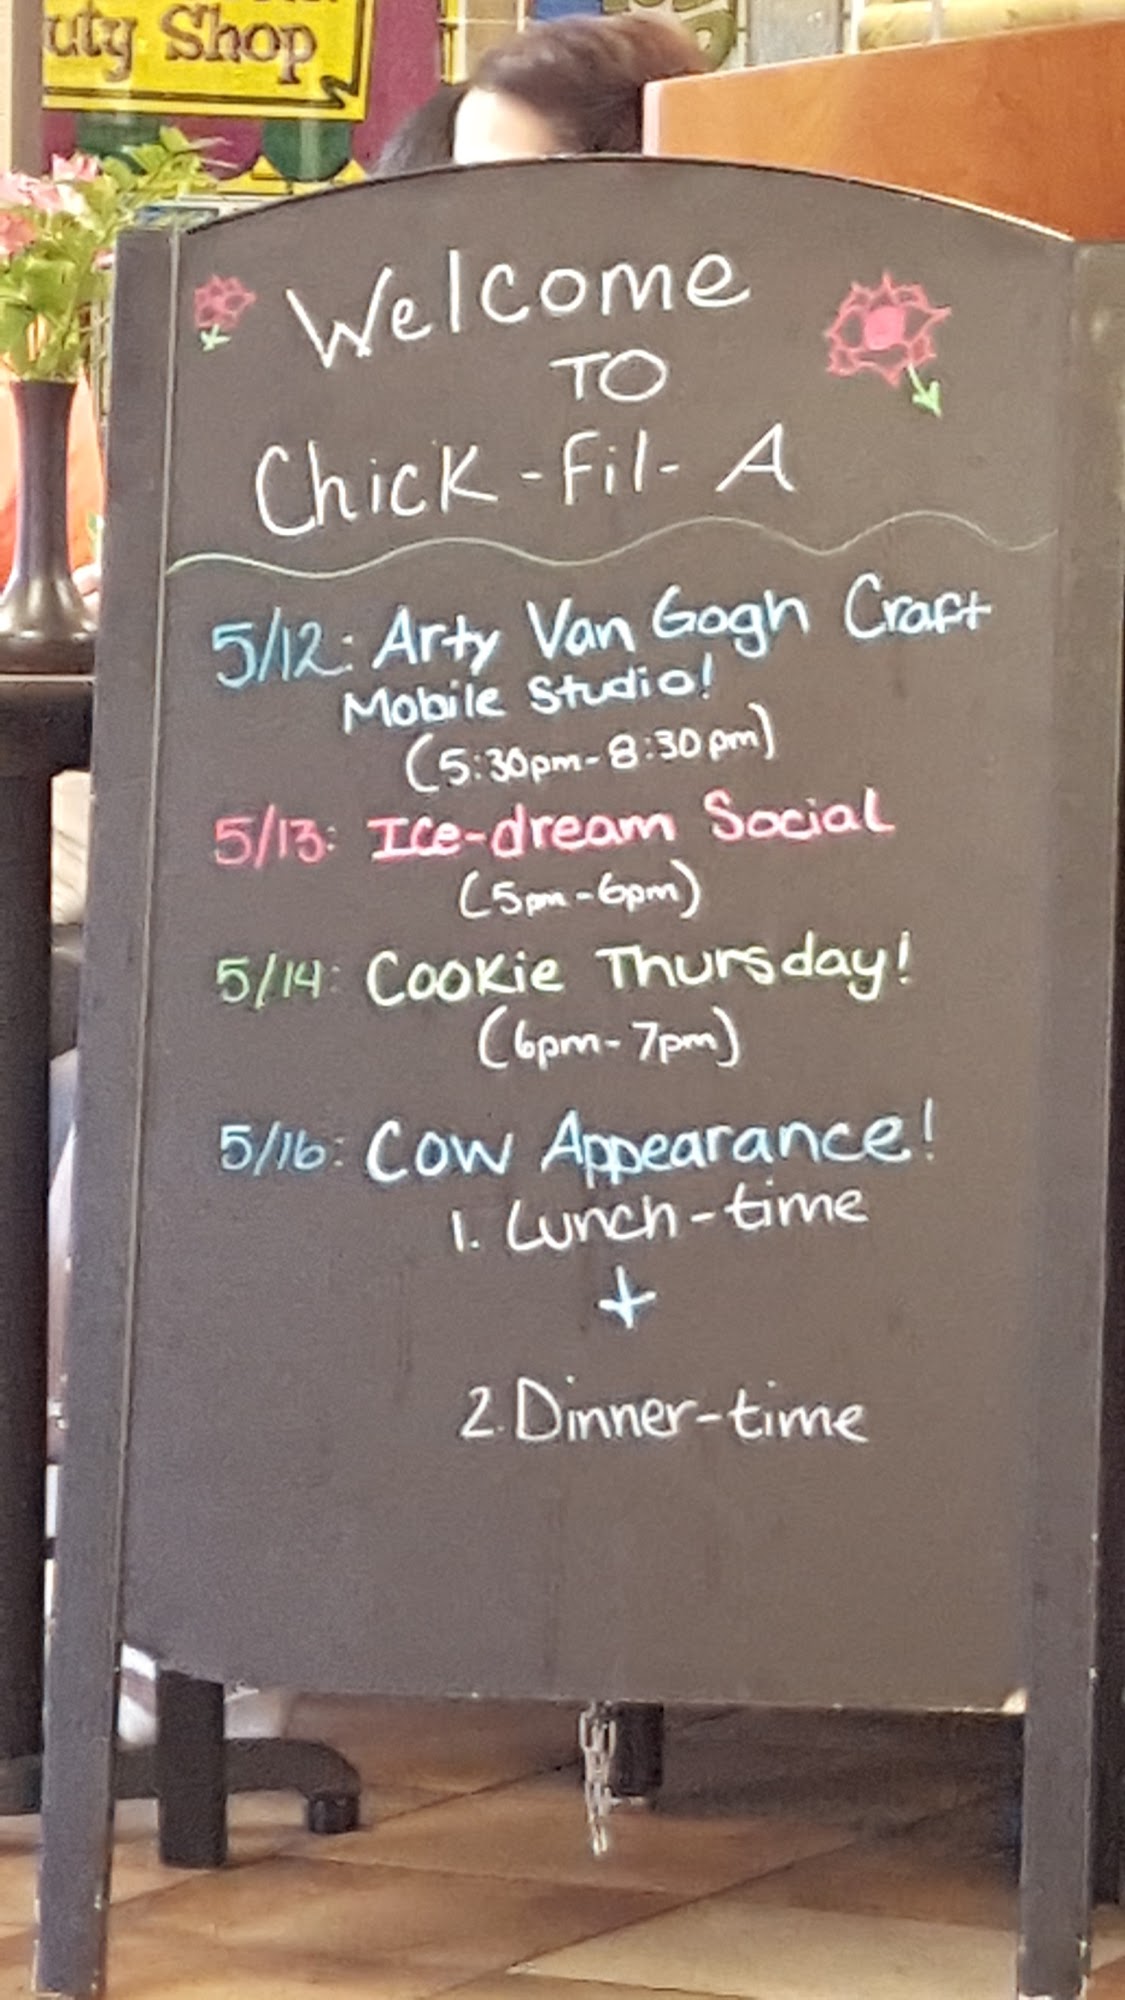 uty Shop
Welcome
TO
Chick-Fil-A
5/12: Arty Van Gogh Craft
Mobile Studio!
(5:30pm-8:30pm)
5/13: Ice-dream Social
(5pm-6pm)
5/14: Cookie Thursday!
(6pm-7pm)
5/16: Cow Appearance!
1. Lunch-time
+
2. Dinner-time